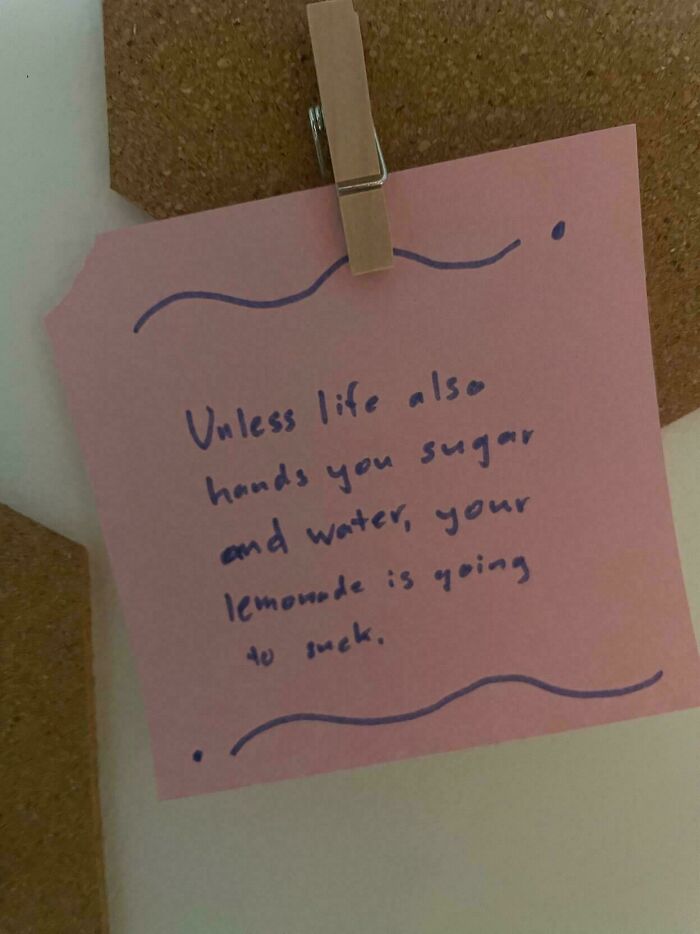 Unless life also
hands you sugar
and water, your
lemonade is going
to suck.